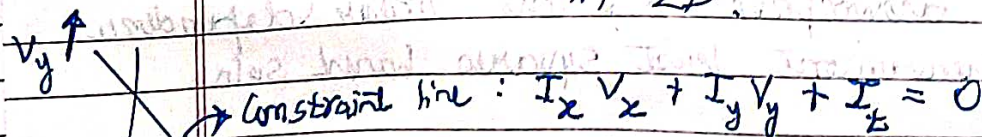 V_y
Constraint line : I_x V_x + I_y V_y + I_t = 0